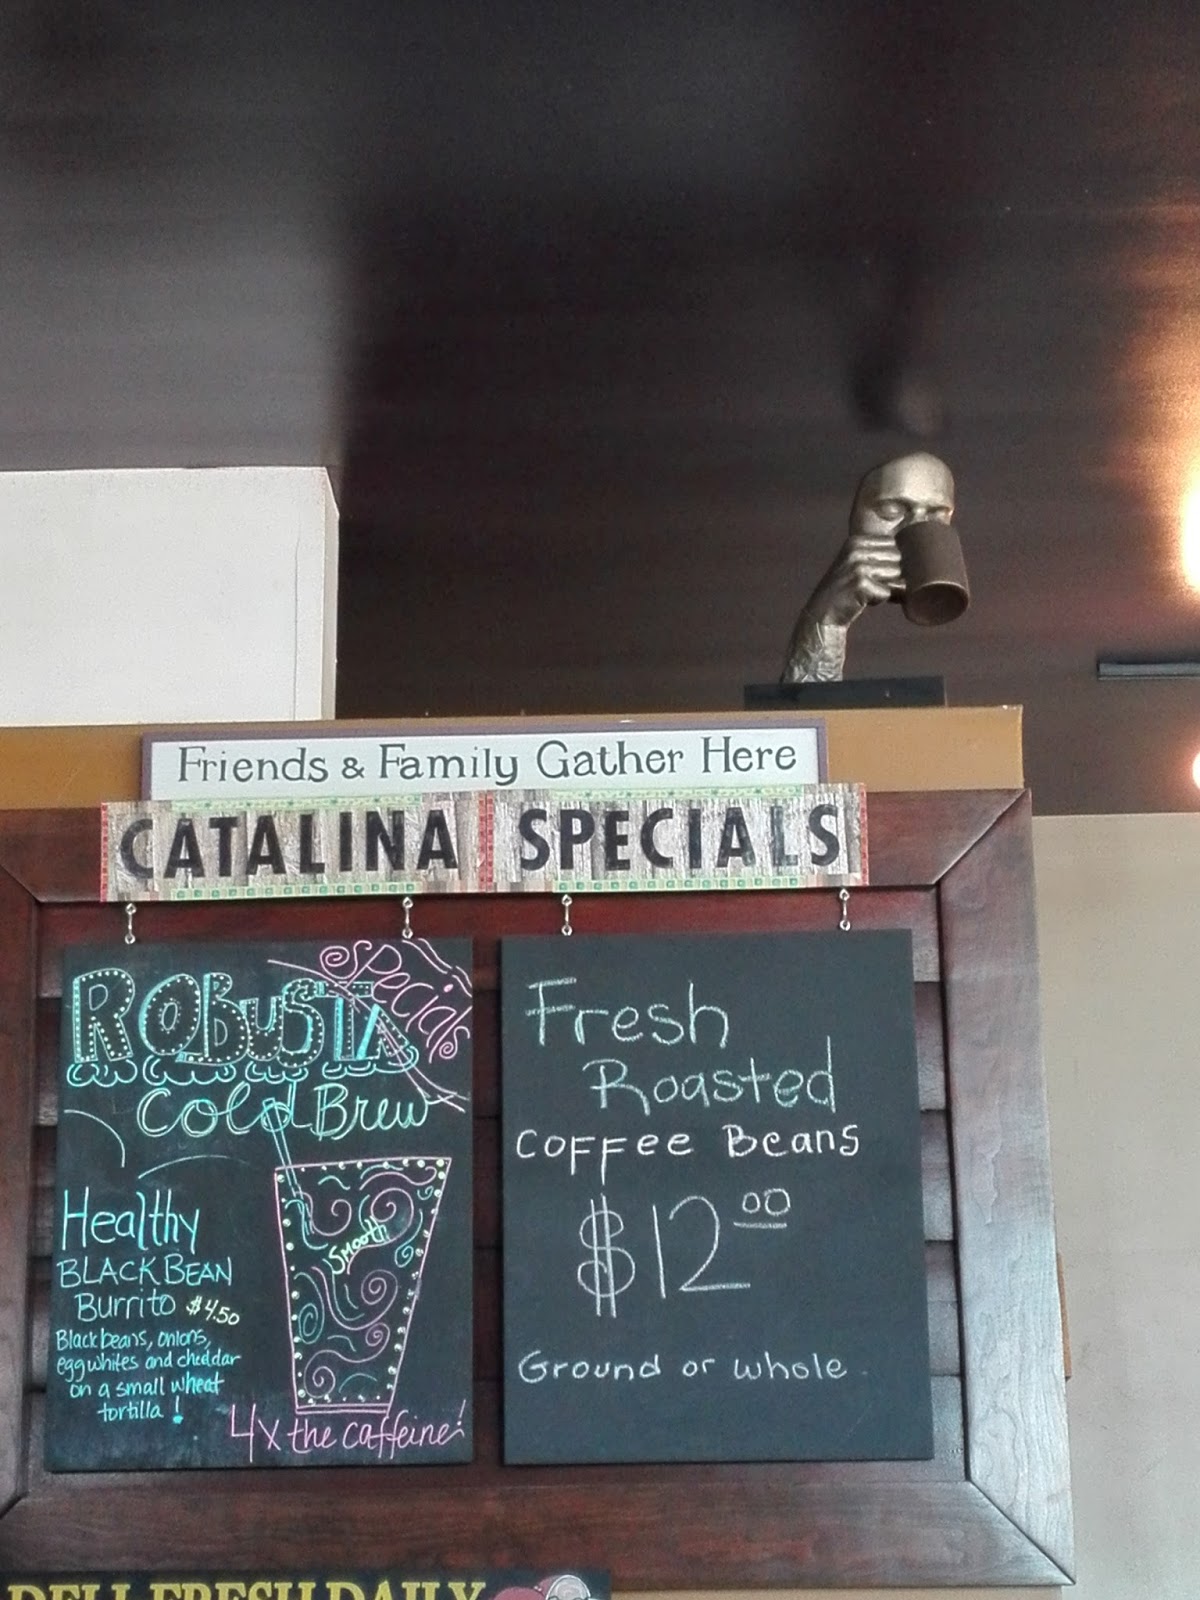 Friends & Family Gather Here
CATALINA SPECIALS
Specials
ROBUSTA
Cold Brew
Smooth
Healthy
BLACK BEAN
Burrito $4.50
Black beans, onions,
egg whites and cheddar
on a small wheat
tortilla!
4x the caffeine!
Fresh
Roasted
Coffee Beans
$12.00
Ground or whole
DELI FRESH DAILY